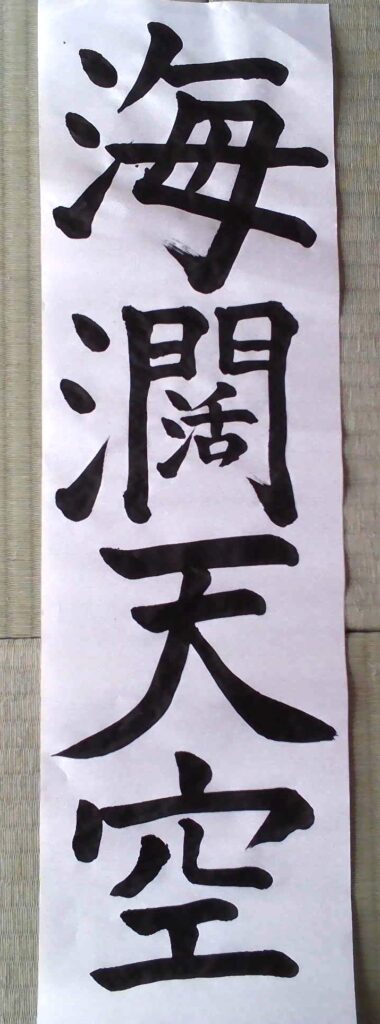 海濶天空